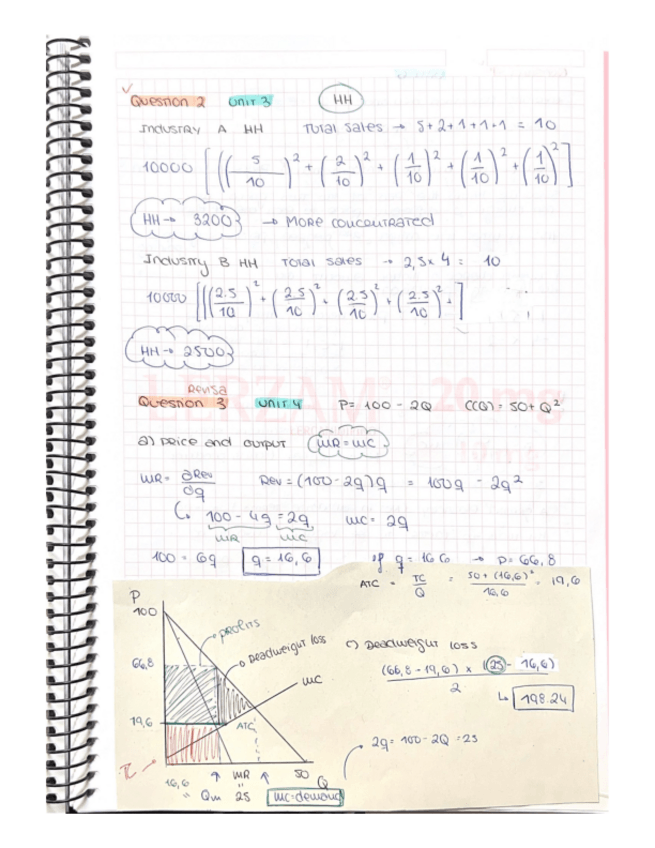 Question 2 Unit 3 HH
Industry A HH Total sales → 5+2+1+1+1 = 10
10000 [((5/10)² + (2/10)² + (1/10)² + (1/10)² + (1/10)²]
HH → 3200 → More concentrated
Industry B HH Total sales → 2,5 x 4 = 10
10000 [((2.5/10)² + (2.5/10)² + (2.5/10)² + (2.5/10)² + ]
HH → 2500
Revisa
Question 3 Unit 4 P = 100 - 2Q C(Q) = 50 + Q²
a) Price and output MR = MC
MR = ∂Rev/∂q Rev = (100 - 2q)q = 100q - 2q²
100 - 4q = 2q MC = 2q
MR MC
100 = 6q q = 16,6 if q = 16 6 → P = 66,8
ATC = TC/Q = 50 + (16,6)²/16,6 = 19,6
P
100
profits
Deadweight loss
c) Deadweight loss
66,8
MC
(66,8 - 19,6) x ((25 - 16,6)/2
↳ 198.24
19,6
ATC
2q = 100 - 2Q = 25
16,6 ↑ MR ↑ 50 Q
= Qm 25 MC = demand